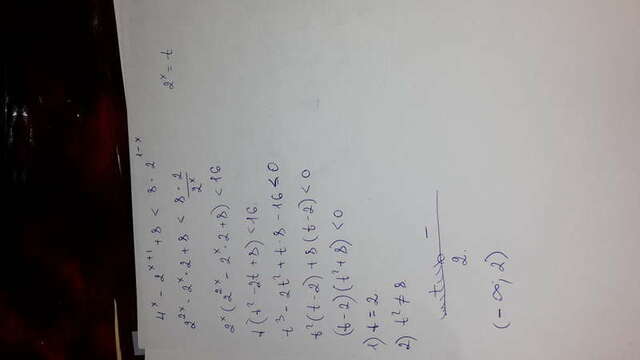 4^x - 2^(x+1) + 8 < 8 · 2^(1-x)
2^(2x) - 2^x · 2 + 8 < 8 · 2/2^x
2^x = t
2^x (2^(2x) - 2^x · 2 + 8) < 16
t (t² - 2t + 8) < 16
t³ - 2t² + t · 8 - 16 < 0
t² (t - 2) + 8 (t - 2) < 0
(t - 2) (t² + 8) < 0
1) t = 2
2) t² ≠ 8
-
2
(-∞; 2)